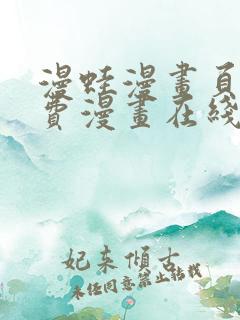 漫蛙漫畫頁
費漫畫在綫
妃来傾古
未任同意禁止転載